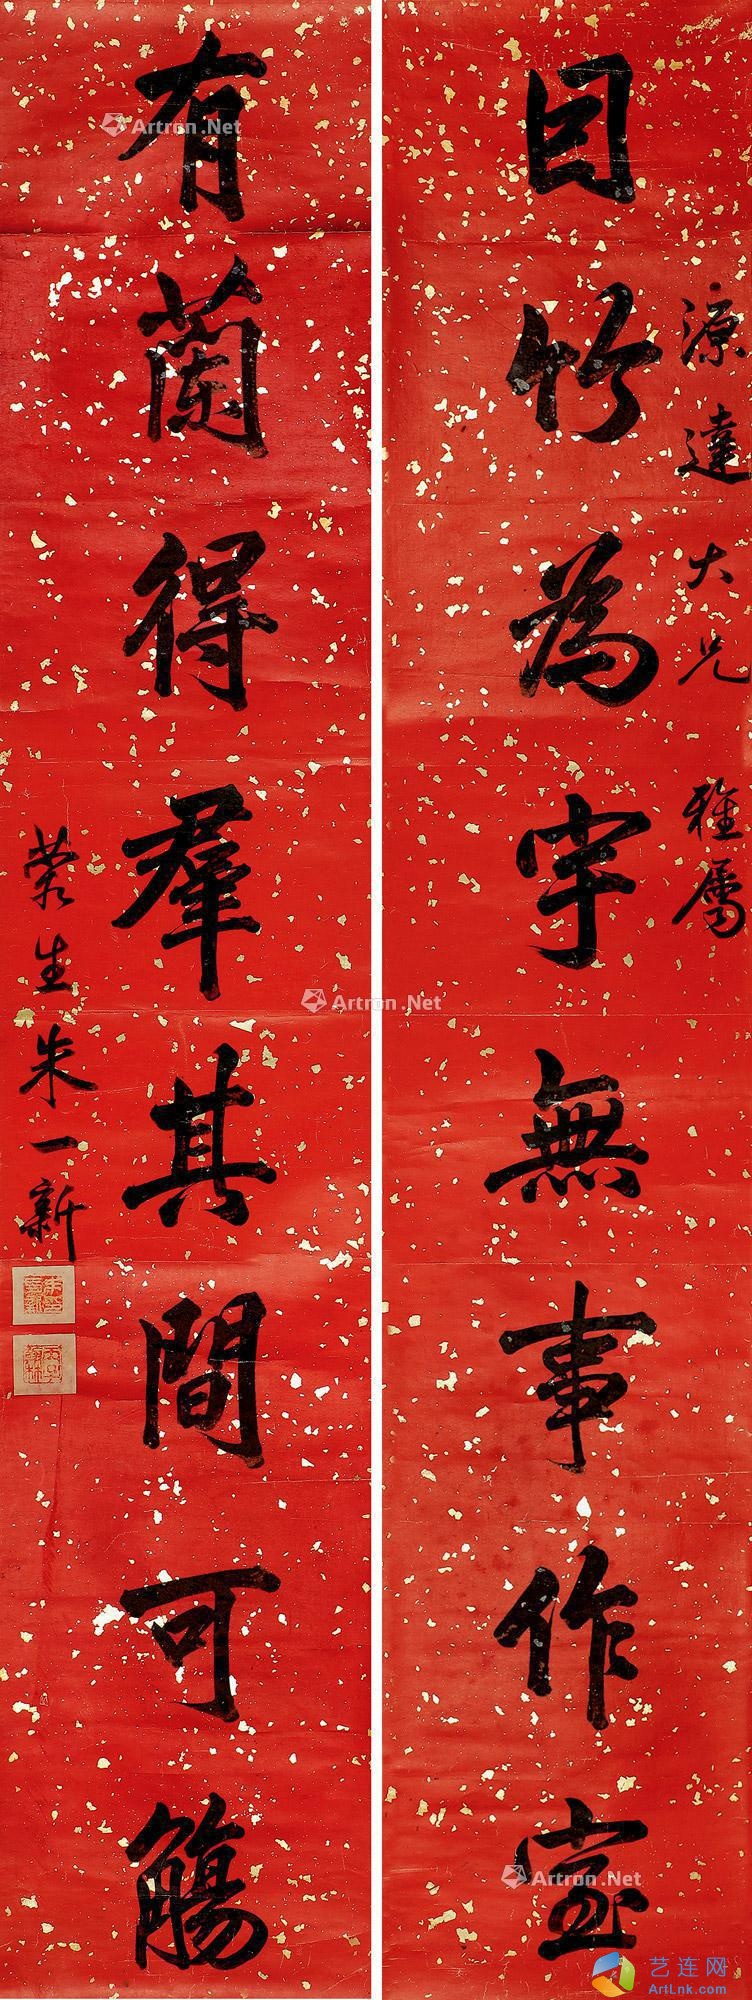 源達大兄雅屬
因竹為宇無事作室
有蘭得羣其間可觴
蓉生朱一新
丙子翰林
Artron.Net
Artron.Net
Artron.Net
艺连网
ArtLnk.com